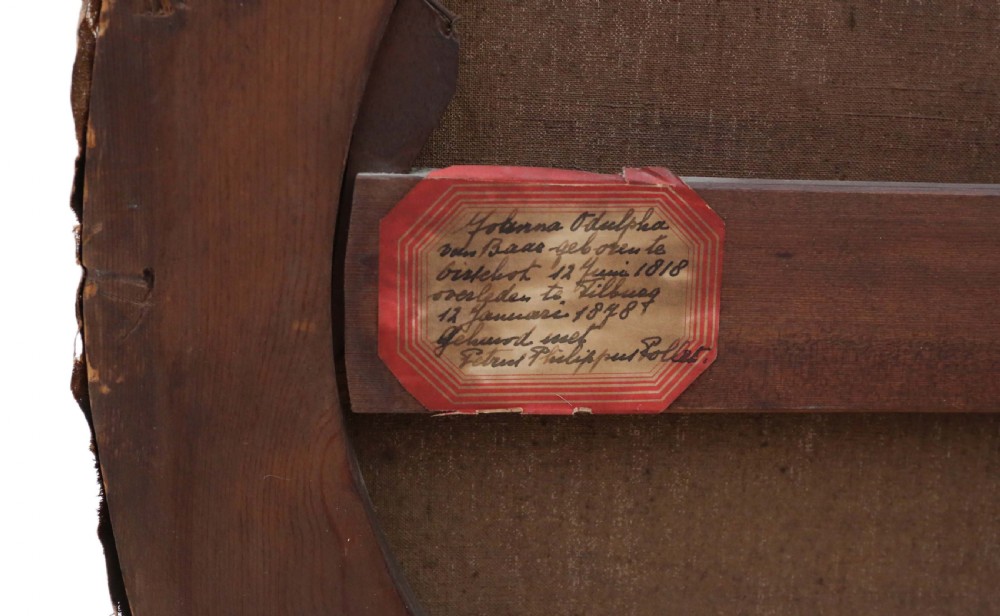 Johanna Odulpha
van Baar geboren te
Oirschot 12 Juni 1818
overleden te Tilburg
12 Januari 1878
Gehuwd met
Petrus Philippus Pollet.